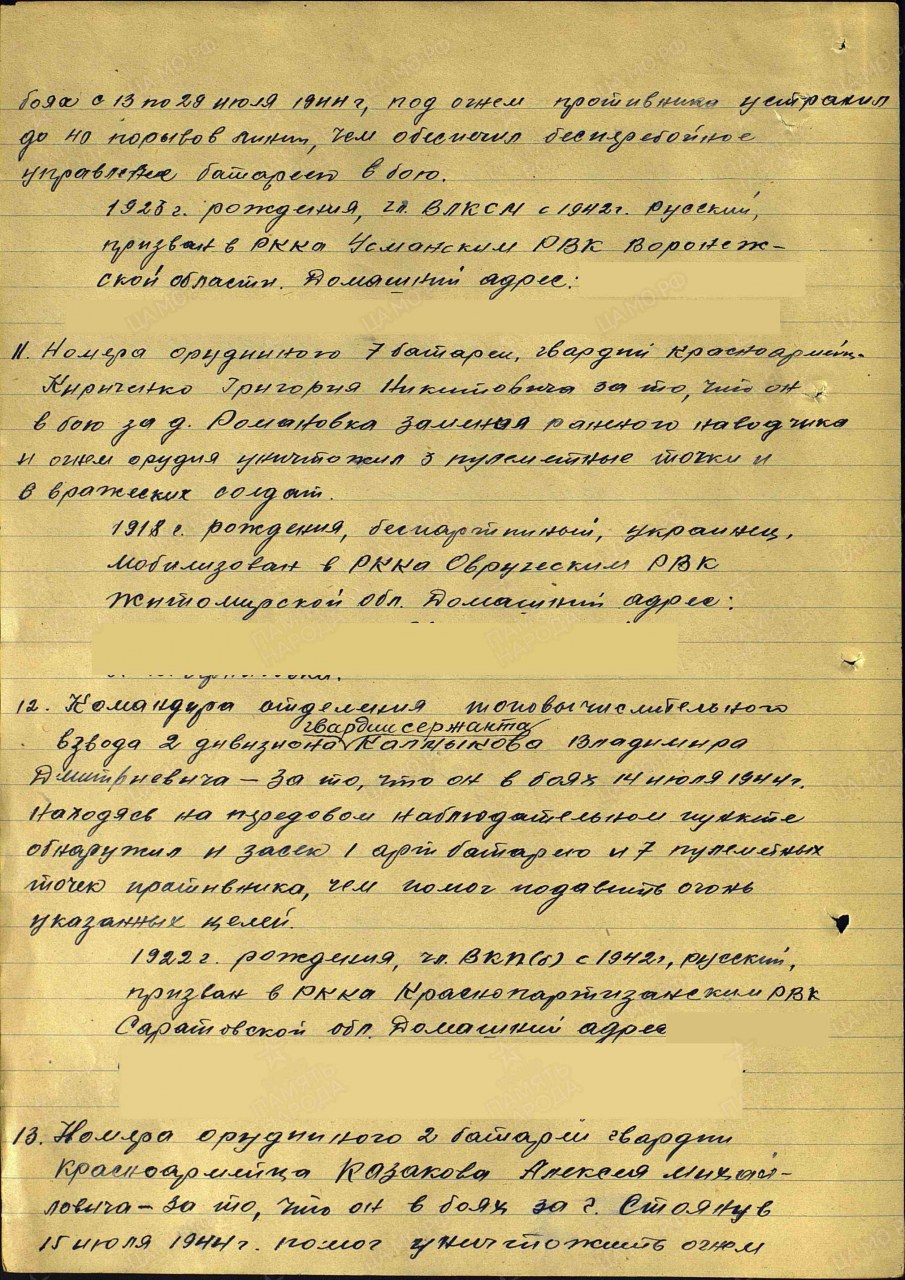 боях с 13 по 29 июля 1944 г, под огнем противника устранил
до 40 порывов линии, чем обеспечил бесперебойное
управление батареей в бою.
рождения, чл. ВЛКСМ с 1942 г. русский,
призван в РККА Усманским РВК Воронеж-
ской области. Домашний адрес:
11. Номера орудийного 7 батареи, гвардии красноармейц.
Кириченко Григория Никитовича за то, что он
в бою за д. Романовка заменил раненого наводчика
и огнем орудия уничтожил 3 пулеметные точки и
вражеских солдат.
1918 г. рождения, беспартийный, украинец,
мобилизован в РККА Овручским РВК
Житомирской обл. Домашний адрес:
12. Командира отделения топовычислительного
гвардии сержанта
взвода 2 дивизиона Калмыкова Владимира
Дмитриевича – за то, что он в боях 14 июля 1944 г.
находясь на передовом наблюдательном пункте
обнаружил и засек 1 арт батарею и 7 пулеметных
точек противника, чем помог подавить огонь
указанных целей.
1922 г. рождения, чл. ВКП(б) с 1942 г, русский,
призван в РККА Краснопартизанским РВК
Саратовской обл. Домашний адрес
13. Номера орудийного 2 батареи гвардии
красноармейца Казакова Алексея Михай-
ловича – за то, что он в боях за г. Стоянув
15 июля 1944 г. помог уничтожить огнем